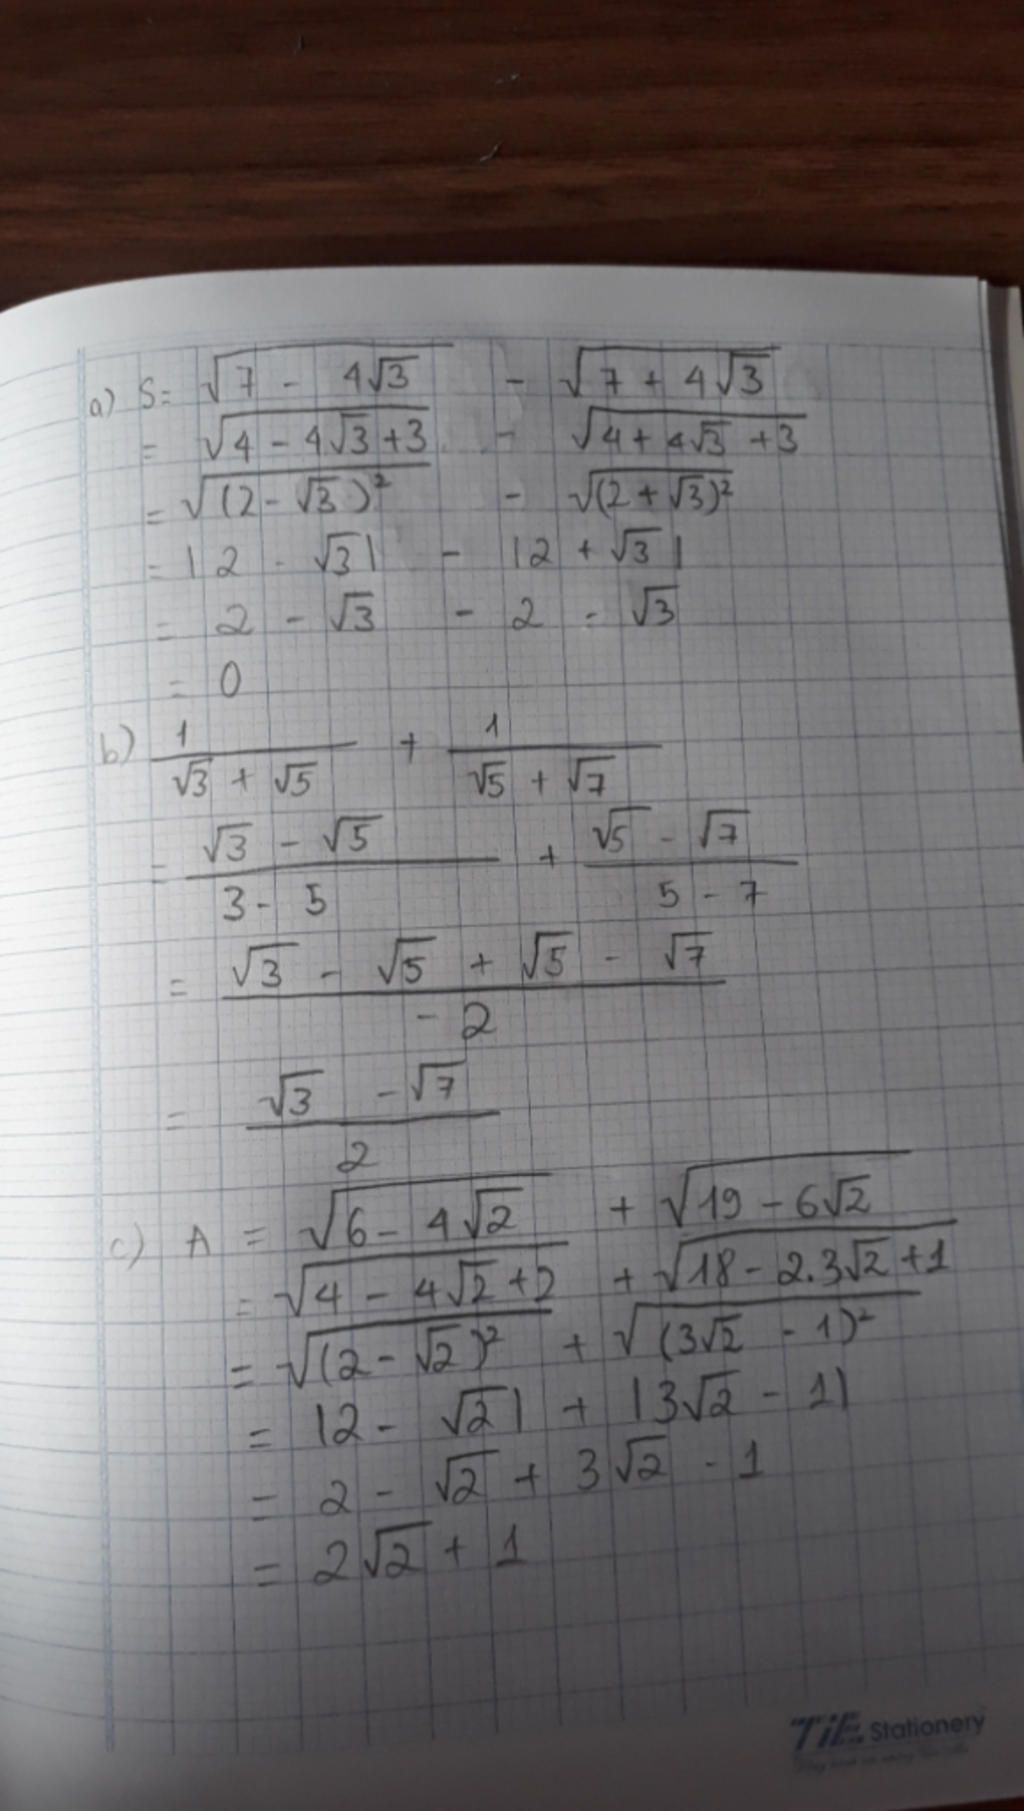 a) S = √(7 - 4√3) - √(7 + 4√3)
= √(4 - 4√3 + 3) - √(4 + 4√3 + 3)
= √((2 - √3)²) - √((2 + √3)²)
= |2 - √3| - |2 + √3|
= 2 - √3 - 2 - √3
= 0
b) 1/(√3 + √5) + 1/(√5 + √7)
= (√3 - √5)/(3 - 5) + (√5 - √7)/(5 - 7)
= (√3 - √5 + √5 - √7)/(-2)
= (√3 - √7)/2
c) A = √(6 - 4√2) + √(19 - 6√2)
= √(4 - 4√2 + 2) + √(18 - 2.3√2 + 1)
= √((2 - √2)²) + √((3√2 - 1)²)
= |2 - √2| + |3√2 - 1|
= 2 - √2 + 3√2 - 1
= 2√2 + 1
TiE Stationery